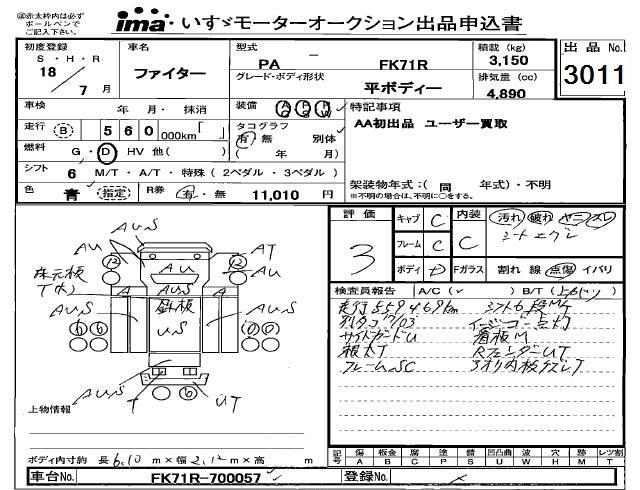 ※赤太枠内は必ず
ボールペンで
ご記入下さい。
ima いすゞモーターオークション出品申込書
初度登録
S・H・R
18
7 月
車名
ファイター
型式
PA － FK71R
グレード・ボディ形状
平ボディー
積載 (kg)
3,150
排気量 (cc)
4,890
出品 No.
3011
車検 年 月・ 抹消
装備 AC PS PW
特記事項
AA初出品 ユーザー買取
走行 (B) 560 000km「 」
タコグラフ
有・無 別体
( 年 月)
燃料 G・D HV 他( )
シフト 6 M/T・A/T・特殊 (2ペダル・3ペダル)
架装物年式：( 同 年式)・不明
※不明の場合は、不明に○をする。
色 青 (指定) R券 有・無 11,010 円
評価
3
キャブ C
フレーム C
ボディ D
内装 C
汚れ 破れ ヤニ スレ
シートエグレ
Fガラス 割れ 線 点傷 イバリ
検査員報告 A/C( ✓ ) B/T(
走行559469km シフト6
別タコ17/03
サイドガードU 看板M
根太T RフェンダーUT
フレームSC アオリ内板
AUS
AU
12
AU
12
AT
AU
床元板
T(木)
AUS
A
鉄板
US
A
US
AUS
6 6
T
6
UT
上物情報
ボディ内寸約 長 6.10 m × 幅 2.12 m × 高 m
記号 傷 A 板金 B 腐 C 塗 P 錆 S 凹凸曲 U 波 W 穴 H 跡 M レツ割 T
車台No. FK71R-700057
登録No.